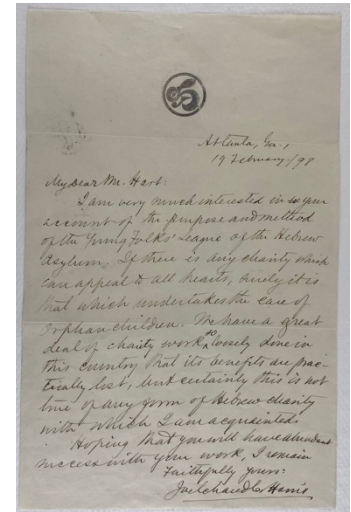 Atlanta, Ga.,
19 February/98
My dear Mr. Hart:
I am very much interested in your
account of the purpose and method
of the Young Folks' League of the Hebrew
Asylum. If there is any charity which
can appeal to all hearts, surely it is
that which undertakes the care of
orphan children. We have a great
deal of charity work so loosely done in
this country that its benefits are prac-
tically lost, but certainly this is not
true of any form of Hebrew charity
with which I am acquainted.
Hoping that you will have abundant
success with your work, I remain
Faithfully yours:
Joel Chandler Harris